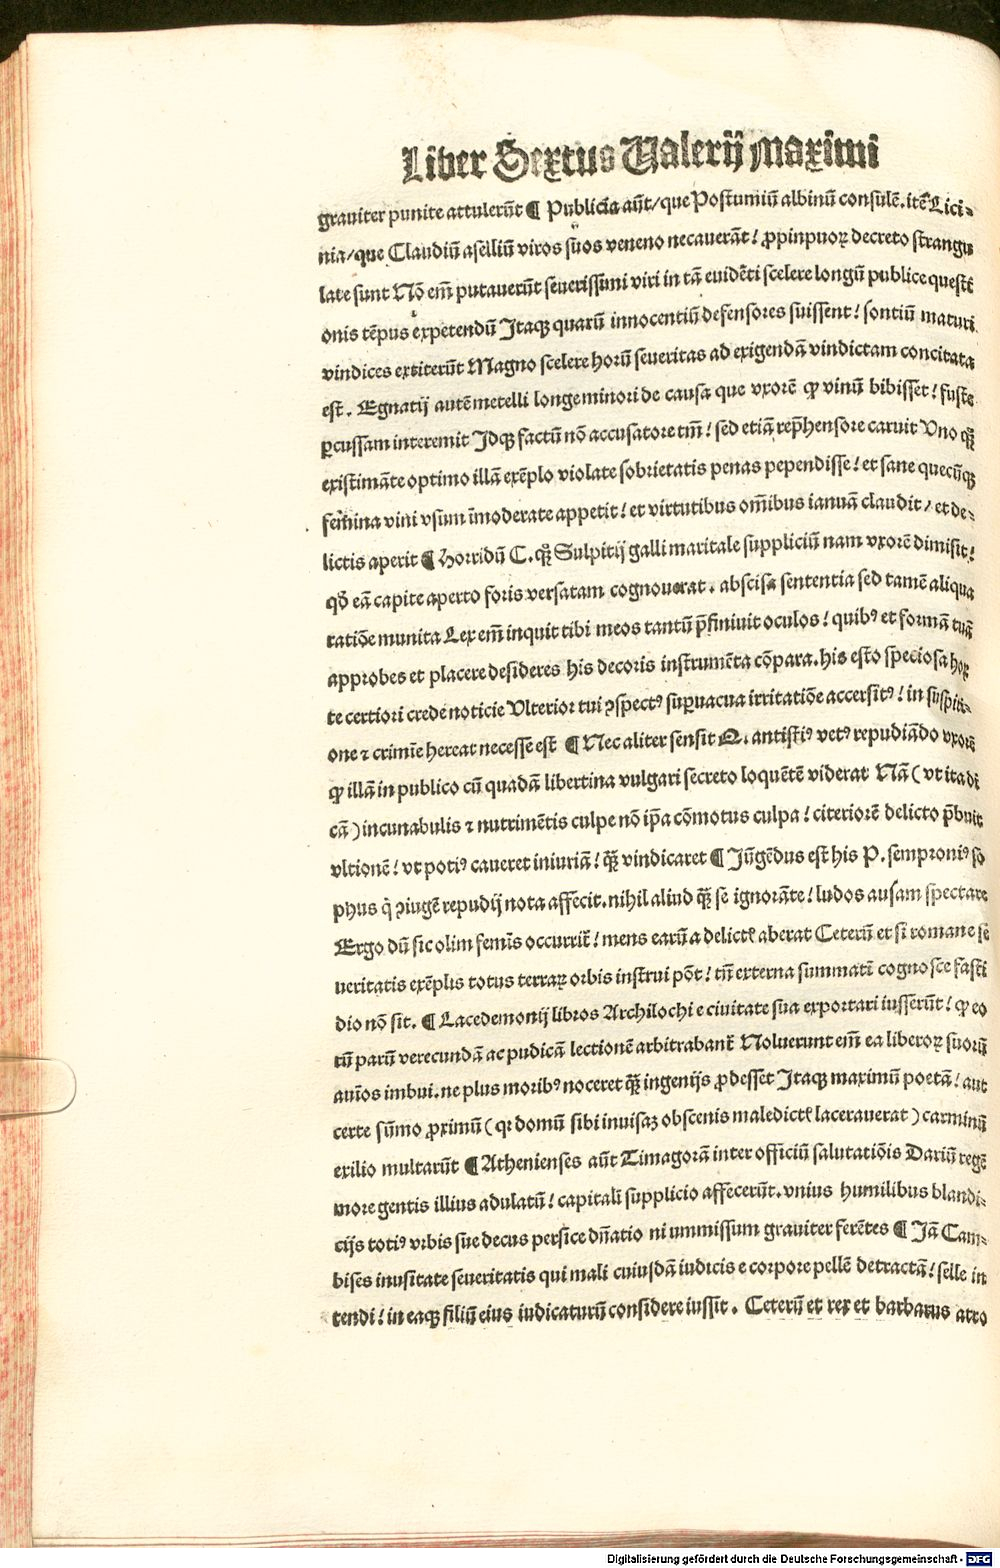 Liber Sextus Valerij Maximi
grauiter punite attulerūt ¶ Publicia aūt/que Postumiū albinū consulē. itē Lici⸗
nia/que Claudiū aselliū viros suos veneno necauerāt! ꝓpinpuoꝝ decreto strangu
late sunt Nō em̄ putauerūt seuerissimi viri in tā euidēti scelere longū publice questi
onis tēpus expetendū Itaqꝫ quarū innocentiū defensores fuissent! sontiū maturi
vindices extiterūt Magno scelere horū seueritas ad exigendā vindictam concitata
est. Egnatij autē metelli longe minori de causa que vxorē ꝙ vinū bibisset! fuste
ꝑcussam interemit Idqꝫ factū nō accusatore tm̄! sed etiā rep̄hensore caruit Vno qꝫ̄
existimāte optimo illā exēplo violate sobrietatis penas pependisse! et sane quecūqꝫ
femina vini vsum īmoderate appetit! et virtutibus om̄ibus ianuā claudit/ et de⸗
lictis aperit ¶ Horridū C. qꝫ̄ Sulpitij galli maritale suppliciū nam vxorē dimisit!
qđ eā capite aperto foris versatam cognouerat. abscisa sententia sed tamē aliqua
ratiōe munita Lex em̄ inquit tibi meos tantū p̄finiuit oculos! quibꝰ et formā tuā
approbes et placere desideres his decoris instrumēta cōpara. his esto speciosa hoꝝ
te certiori crede noticie Vlterior tui ꝯspectꝰ suꝑuacua irritatiōe accersitꝰ! in suspiti⸗
one ⁊ crimīe hereat necesse est ¶ Nec aliter sensit Q. antistiꝰ vetꝰ repudiādo vxorē
ꝙ illā in publico cū quadā libertina vulgari secreto loquētē viderat Nā (vt ita di
cā) incunabulis ⁊ nutrimētis culpe nō ip̄a cōmotus culpa! citeriorē delicto p̄buit
vltionē! vt potiꝰ caueret iniuriā! qꝫ̄ vindicaret ¶ Iūgēdus est his P. semproniꝰ so
phus q̇ ꝯiugē repudij nota affecit. nihil aliud qꝫ̄ se ignorāte! ludos ausam spectare
Ergo dū sic olim femīs occurrit̄! mens earū a delictꝭ aberat Ceterū et si romane se
ueritatis exēplis totus terraꝝ orbis instrui pōt! tn̄ externa summatī cognosce fasti
dio nō sit. ¶ Lacedemonij libros Archilochi e ciuitate sua exportari iusserūt! ꝙ eo
rū parū verecundā ac pudicā lectionē arbitrabant̄ Noluerunt em̄ ea liberoꝝ suorū
aūios imbui. ne plus moribꝰ noceret qꝫ̄ ingenijs ꝓdesset Itaqꝫ maximū poetā! aut
certe sūmo ꝓximū (qꝛ domū sibi inuisaꝫ obscenis maledictꝭ lacerauerat) carminū
exilio multarūt ¶ Athenienses aūt Timagorā inter officiū salutatiōis Dariū regē
more gentis illius adulatū! capitali supplicio affecerūt. vnius humilibus blandi⸗
cijs totiꝰ vrbis sue decus persice dn̄atio ni ummissum grauiter ferētes ¶ Iā Cam⸗
bises inusitate seueritatis qui mali cuiusdā iudicis e corpore pellē detractā! selle in
tendi! in eaqꝫ filiū eius iudicaturū considere iussit. Ceterū et rex et barbarus atro
Digitalisierung gefördert durch die Deutsche Forschungsgemeinschaft - DFG